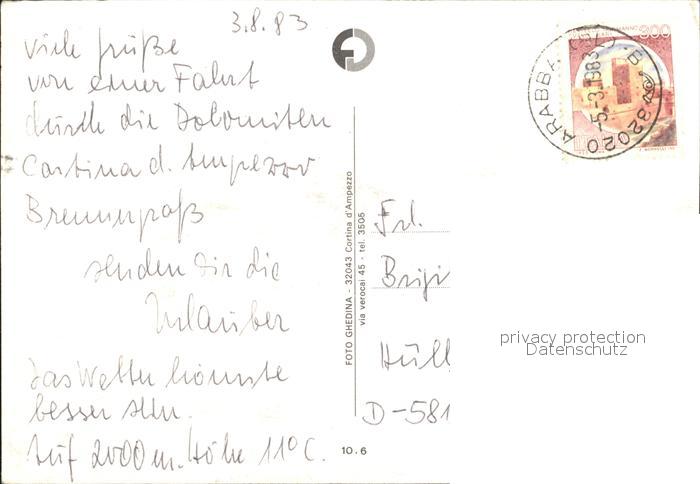 3.8.83
viele Grüße
von einer Fahrt
durch die Dolomiten
Cortina d. Ampezzo
Brennerpaß
senden Dir die
Urlauber
Das Wetter könnte
besser sein.
Auf 2000 m. Höhe 11°C.
FOTO GHEDINA - 32043 Cortina d'Ampezzo
via verocai 45 - tel. 3505
10.6
300
32020 ARABBA (BL)
Frl.
Brigi
Hüll
D-581
privacy protection
Datenschutz